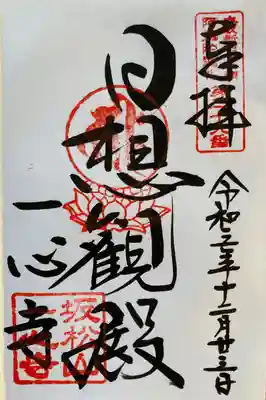 奉拝
令和三年十二月廿三日
日想観殿
一心寺
坂松山
一心寺